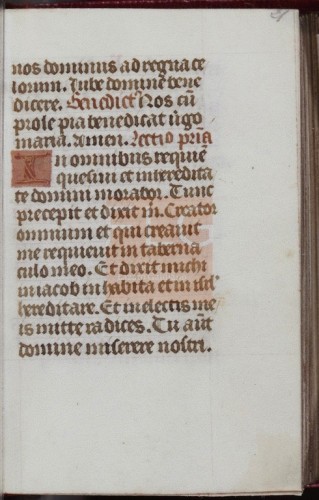 nos dominus ad regna ce
lorum. Iube domine bene
dicere. Benedict' Nos cū
prole pia benedicat ūgo
maria. Amen. Lectio prīa
In omnibus requiē
quesiui et in heredita
te domini morabor. Tunc
precepit et dixit m̄. Creator
omnium et qui creauit
me requieuit in taberna
culo meo. Et dixit michi
in iacob in habita et in isrl'
hereditare. Et in electis me
is mitte radices. Tu aūt
domine miserere nostri.